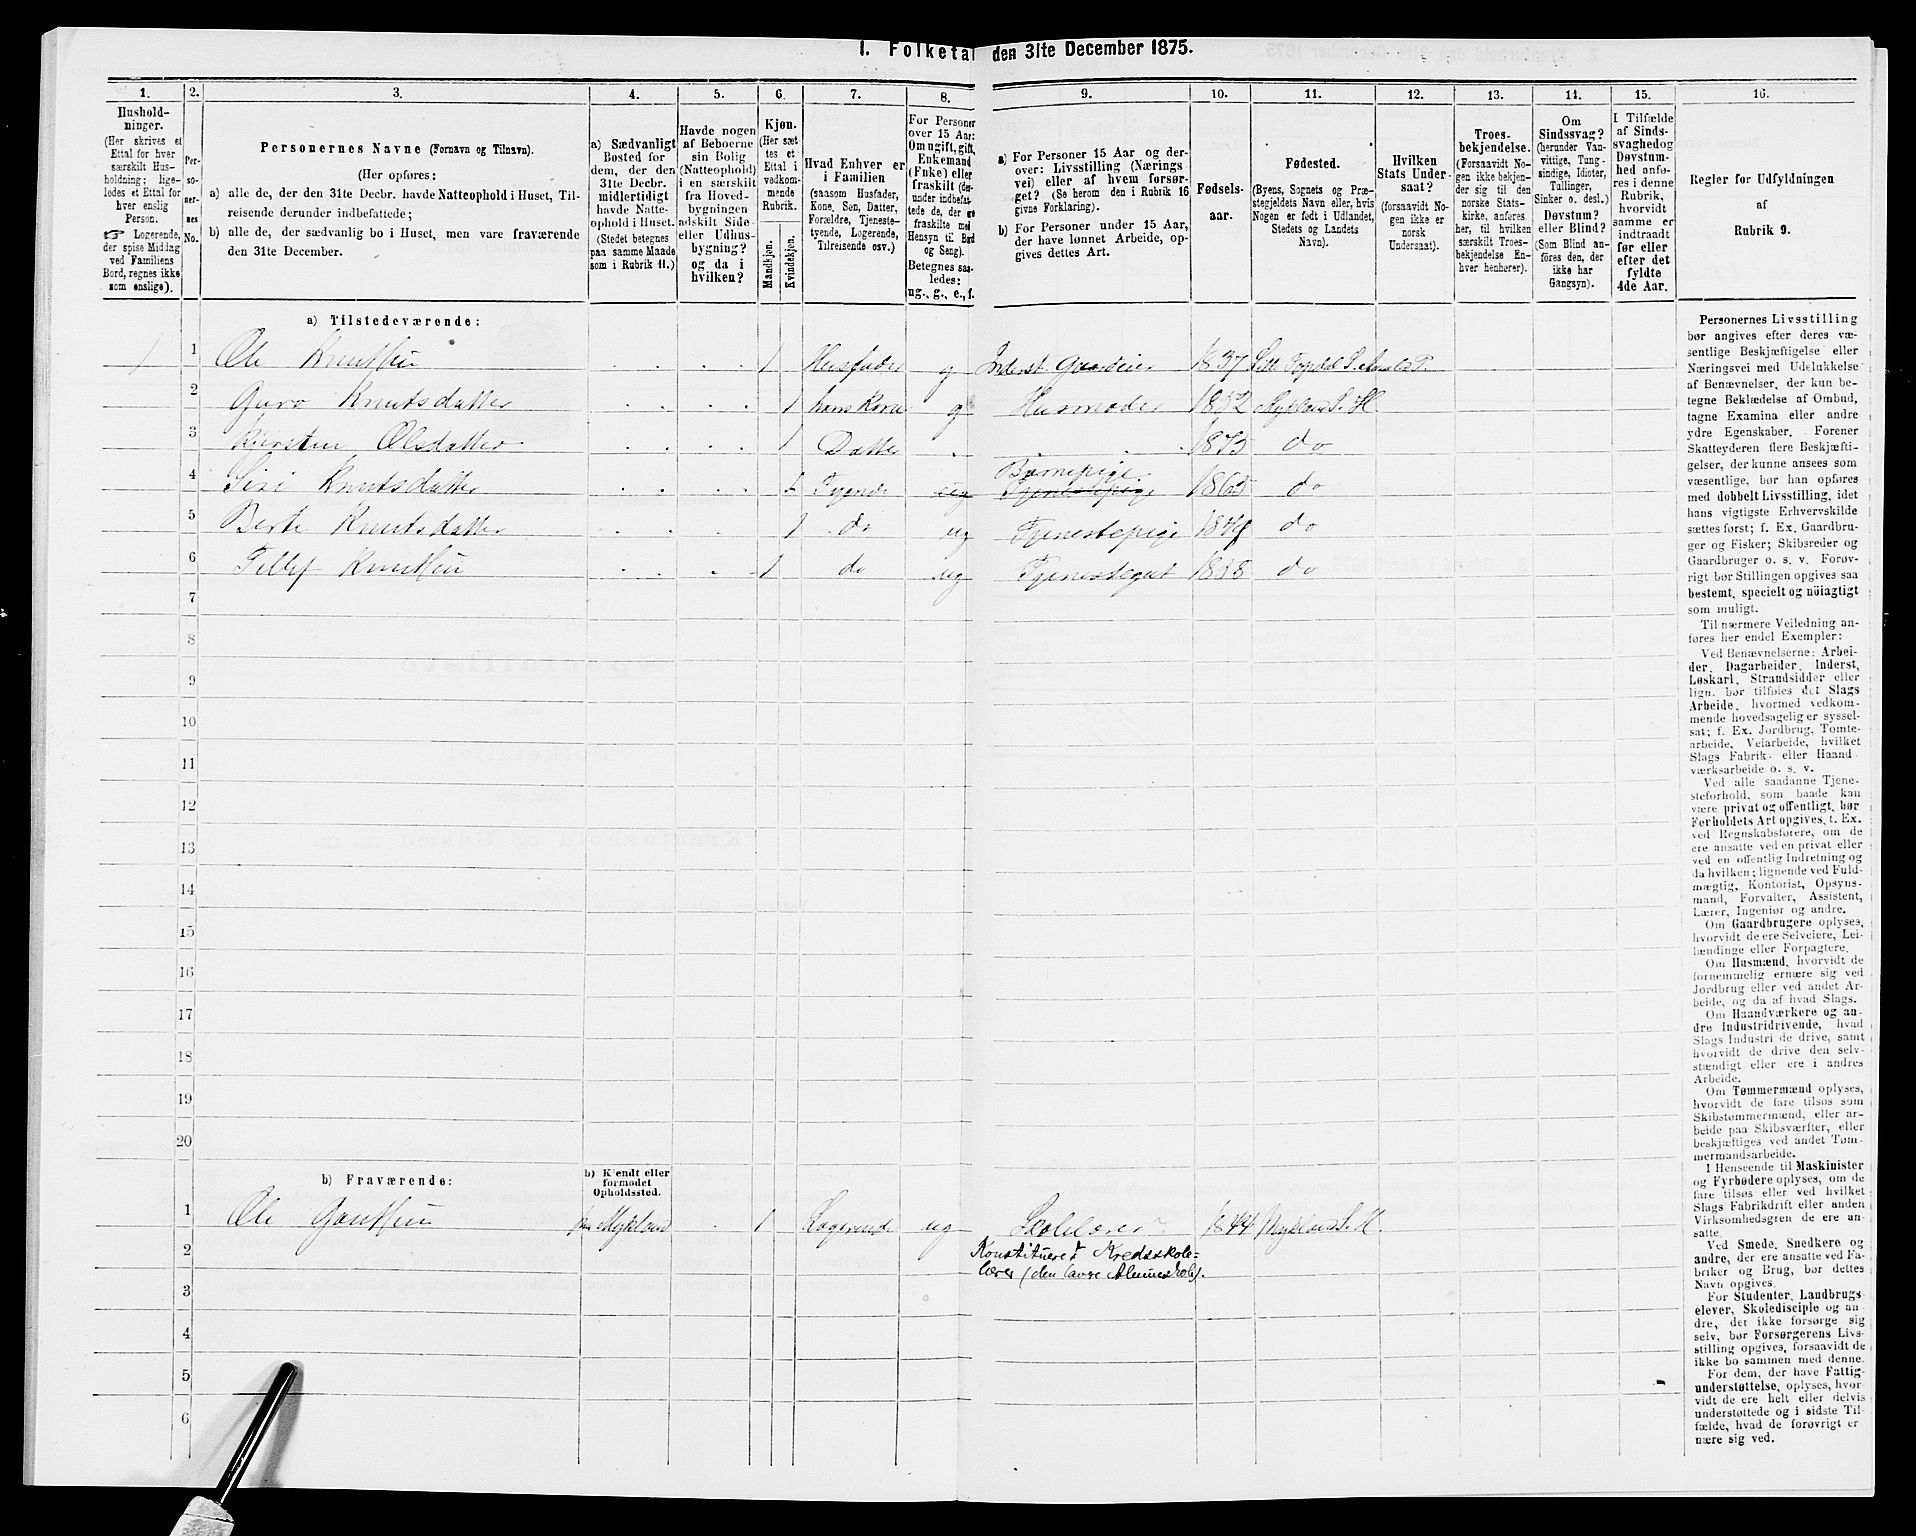 1. Folketal den 31te December 1875.
1. 2. 3. 4. 5. 6. 7. 8. 9. 10. 11. 12. 13. 14. 15. 16.
Hushold-
ninger.
(Her skrives et
Ettal for hver
særskilt Hus-
holdning; lige-
ledes et Ettal for
hver enslig
Person.
☞ Logerende,
der spise Middag
ved Familiens
Bord, regnes ikke
som enslige).
Per-
so-
ner-
nes
No.
Personernes Navne (Fornavn og Tilnavn).
(Her opføres:
a) alle de, der den 31te Decbr. havde Natteophold i Huset, Til-
reisende derunder indbefattede;
b) alle de, der sædvanlig bo i Huset, men vare fraværende
den 31te December.
a) Sædvanligt
Bosted for
dem, der den
31te Decbr.
midlertidigt
havde Natte-
ophold i Huset.
(Stedet betegnes
paa samme Maade
som i Rubrik 11.)
Havde nogen
af Beboerne
sin Bolig
(Natteophold)
i en særskilt
fra Hoved-
bygningen
adskilt Side-
eller Udhus-
bygning?
og da i
hvilken?
Kjøn.
(Her sæt-
tes et
Ettal i
vedkom-
mende
Rubrik.
Mandkjøn.
Kvindekjøn.
Hvad Enhver er
i Familien
(saasom Husfader,
Kone, Søn, Datter,
Forældre, Tjeneste-
tyende, Logerende,
Tilreisende osv.)
For Personer
over 15 Aar:
Om ugift, gift,
Enkemand
(Enke) eller
fraskilt (der-
under indbefat-
tede de, der ere
fraskilte med
Hensyn til Bord
og Seng).
Betegnes saa-
ledes:
ug., g., e., f.
a) For Personer 15 Aar og der-
over: Livsstilling (Nærings-
vei) eller af hvem forsør-
get? (Se herom den i Rubrik 16
givne Forklaring).
b) For Personer under 15 Aar,
der have lønnet Arbeide, op-
gives dettes Art.
Fødsels-
aar.
Fødested.
(Byens, Sognets og Præ-
stegjeldets Navn eller, hvis
Nogen er født i Udlandet,
Stedets og Landets
Navn).
Hvilken
Stats Under-
saat?
(forsaavidt No-
gen ikke er
norsk
Undersaat).
Troes-
bekjendelse.
(Forsaavidt No-
gen ikke bekjen-
der sig til den
norske Stats-
kirke, anføres
her, til hvilken
særskilt Troes-
bekjendelse En-
hver henhører).
Om
Sindssvag?
(herunder Van-
vittige, Tung-
sindige, Idioter,
Tullinger,
Sinker o. desl.)
Døvstum?
eller Blind?
(Som Blind an-
føres den, der
ikke har
Gangsyn).
I Tilfælde
af Sinds-
svaghed og
Døvstum-
hed anfø-
res i denne
Rubrik,
hvorvidt
samme er
indtraadt
før eller
efter det
fyldte
4de Aar.
Regler for Udfyldningen
af
Rubrik 9.
a) Tilstedeværende:
1 1 Ole Knutsen 1 Husfader g Inderst Gaardeier 1837
2 Guro Knutsdatter 1 hans Kone g Husmoder 1852 Mykland S. H
3 Kirsten Olsdatter 1 Datter 1875 do
4 Siri Knutsdatter 1 Tyende ug Barnepige Tjenestepige 1863 do
5 Berte Knutsdatter 1 do ug Tjenestepige do
6 Tellef Knutsen 1 do ug Tjenestegut 1858 do
7
8
9
10
11
12
13
14
15
16
17
18
19
20
b) Fraværende:
b) Kjendt eller
formodet
Opholdssted.
1 Ole Mykland 1 Logerende ug Skolelærer 1844 Mykland S. H.
2 Konstitueret Kredsskole-
lærer (den lavre Almueskole).
3
4
5
6
Personernes Livsstilling
bør angives efter deres væ-
sentlige Beskjæftigelse eller
Næringsvei med Udelukkelse
af Benævnelser, der kun be-
tegne Beklædelse af Ombud,
tagne Examina eller andre
ydre Egenskaber. Forener
Skatteyderen flere Beskjæfti-
gelser, der kunne ansees som
væsentlige, bør han opføres
med dobbelt Livsstilling, idet
hans vigtigste Erhvervskilde
sættes først; f. Ex. Gaardbru-
ger og Fisker; Skibsreder og
Gaardbruger o. s. v. Forøv-
rigt bør Stillingen opgives saa
bestemt, specielt og nöiagtigt
som muligt.
Til nærmere Veiledning an-
føres her endel Exempler:
Ved Benævnelserne: Arbei-
der, Dagarbeider, Inderst,
Løskarl, Strandsidder eller
lign. bør tilføies det Slags
Arbeide, hvormed vedkom-
mende hovedsagelig er syssel-
sat; f. Ex. Jordbrug, Tomte-
arbeide, Veiarbeide, hvilket
Slags Fabrik- eller Haand-
værksarbeide o. s. v.
Ved alle saadanne Tjene-
steforhold, som baade kan
være privat og offentligt, bør
Forholdets Art opgives, t. Ex.
ved Regnskabsførere, om de
ere ansatte ved en privat eller
ved en offentlig Indretning og
da hvilken; lignende ved Fuld-
mægtig, Kontorist, Opsyns-
mand, Forvalter, Assistent,
Lærer, Ingeniør og andre.
Om Gaardbrugere oplyses,
hvorvidt de ere Selveiere, Lei-
lændinge eller Forpagtere.
Om Husmænd, hvorvidt de
fornemmelig ernære sig ved
Jordbrug eller ved andet Ar-
beide, og da af hvad Slags.
Om Haandværkere og an-
dre Industridrivende, hvad
Slags Industri de drive, samt
hvorvidt de drive den selv-
stændigt eller ere i andres
Arbeide.
Om Tømmermænd oplyses,
hvorvidt de fare tilsøs som
Skibstømmermænd, eller ar-
beide paa Skibsværfter, eller
beskjæftiges ved andet Tøm-
mermandsarbeide.
I Henseende til Maskinister
og Fyrbødere oplyses, om de
fare tilsøs eller ved hvilket
Slags Fabrikdrift eller anden
Virksomhedsgren de ere an-
satte.
Ved Smede, Snedkere og
andre, der ere ansatte ved Fa-
briker og Brug, bør dettes
Navn opgives.
For Studenter, Landbrugs-
elever, Skoledisciple og an-
dre, der ikke forsørge sig
selv, bør Forsørgerens Livs-
stilling opgives, forsaavidt de
ikke bo sammen med denne.
For dem, der have Fattig-
understøttelse, oplyses, hvor-
vidt de ere helt eller delvis
understøttede og i sidste Til-
fælde, hvad de forøvrigt er-
nære sig ved.